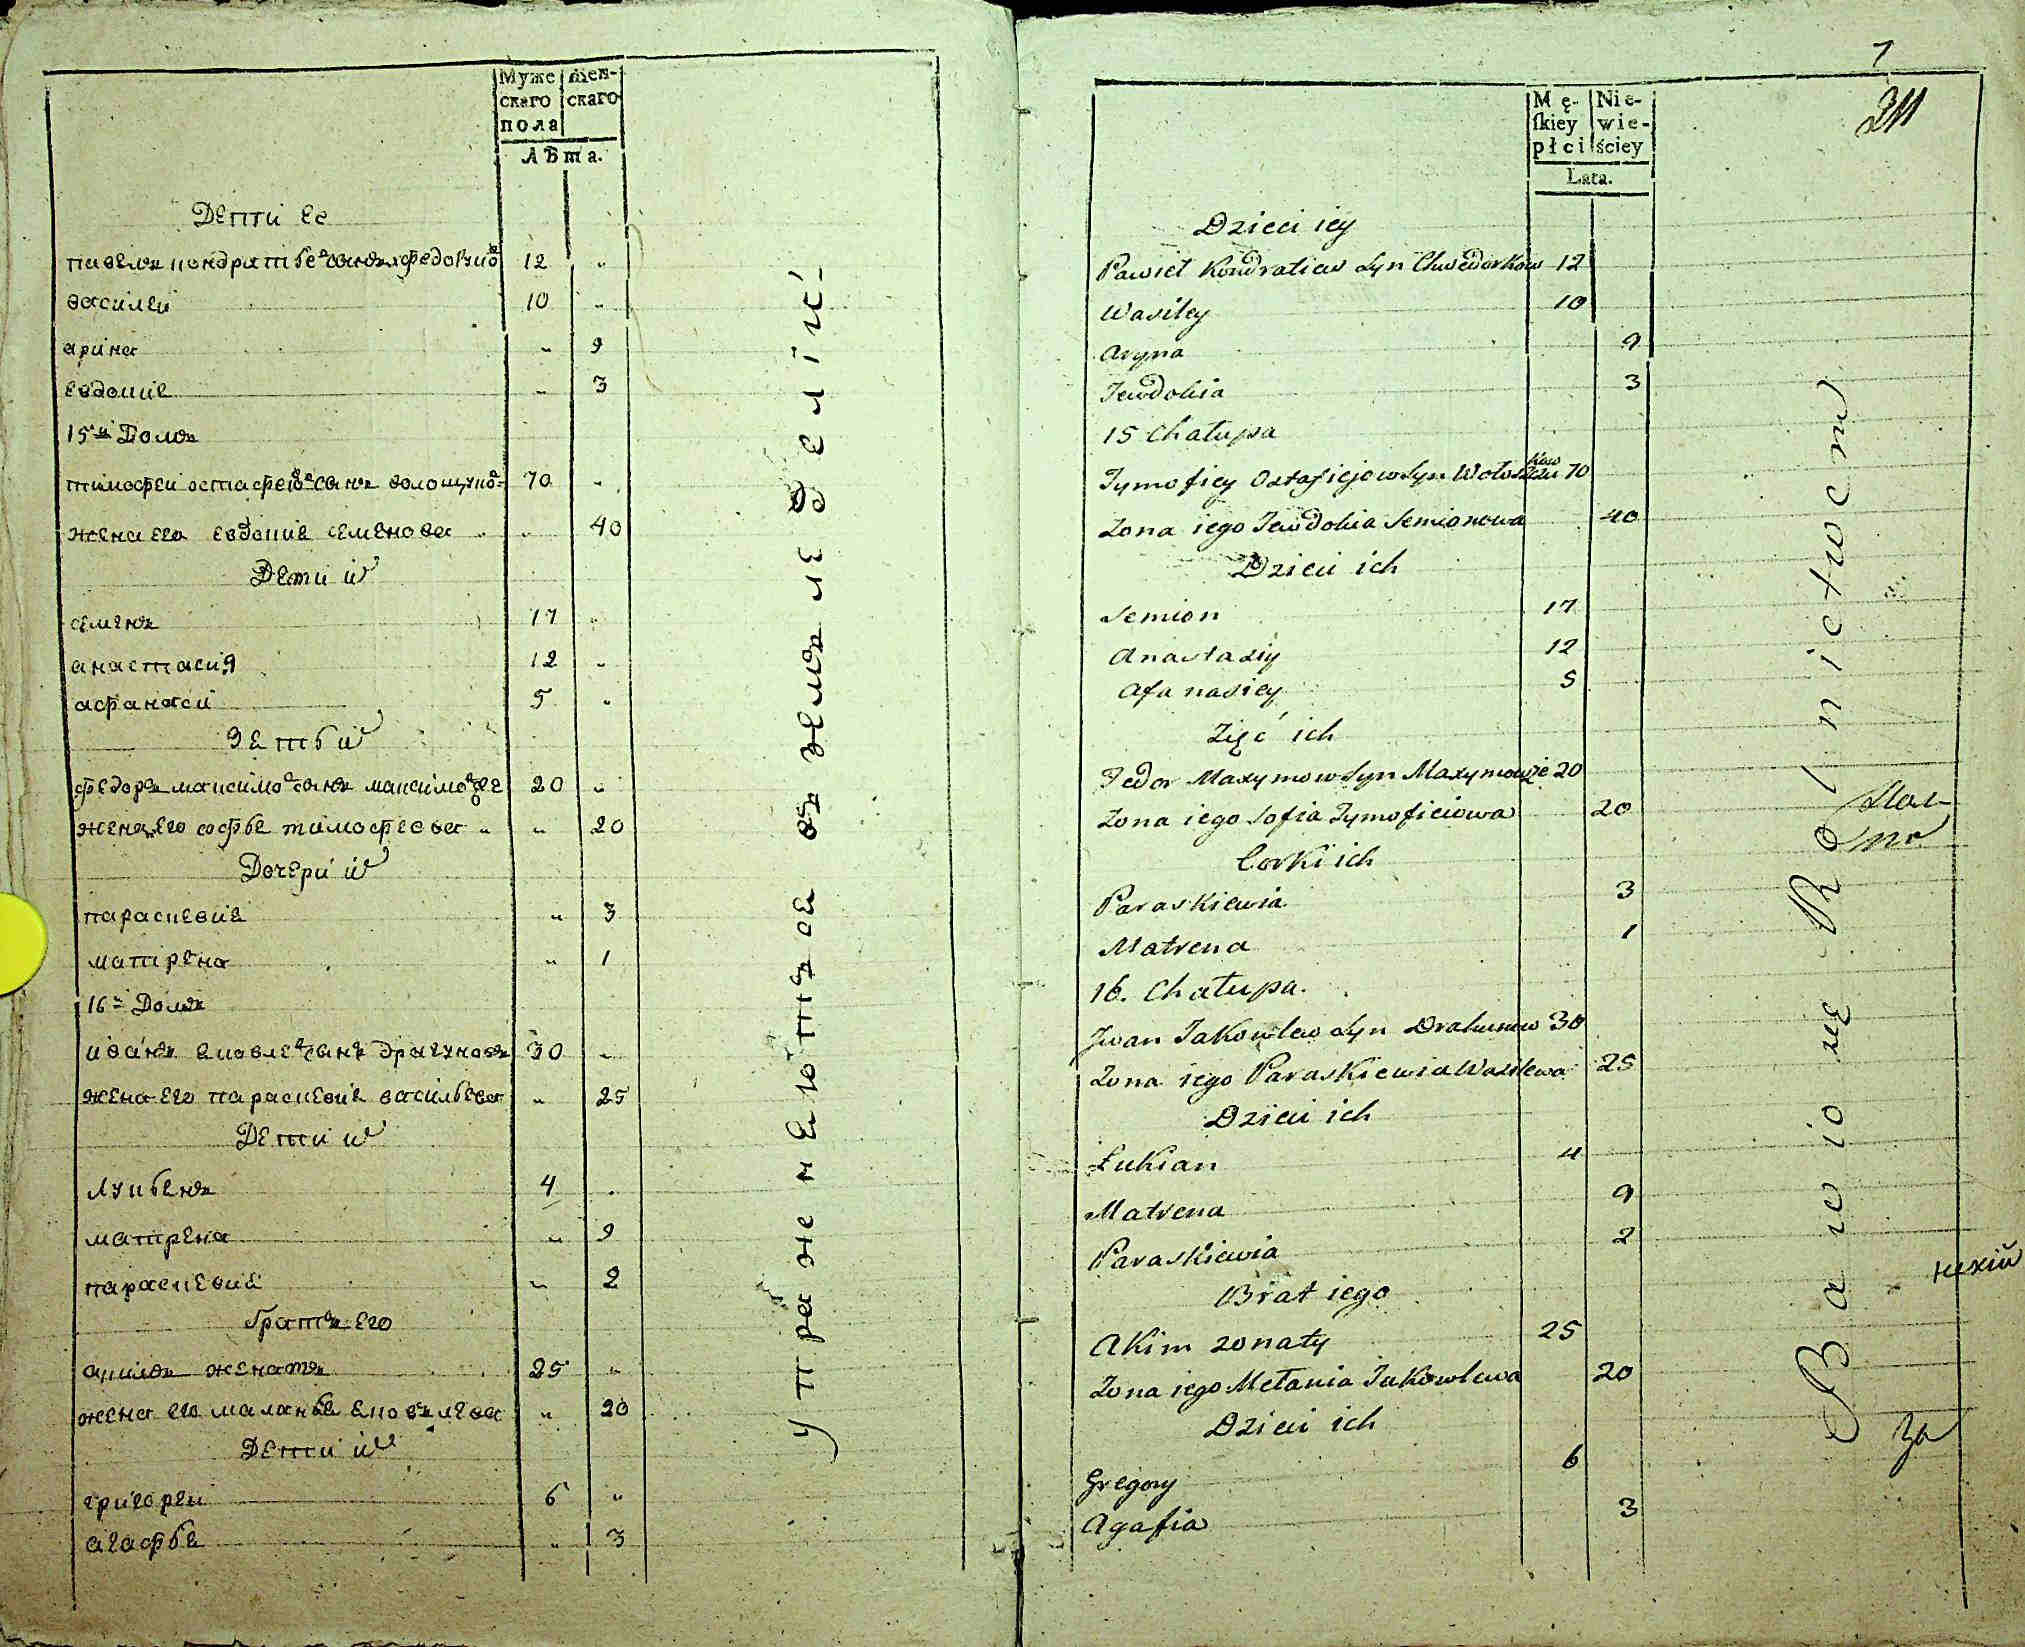 Муже жен-
скаго скаго
пола
Лѣта.
Дети ее
павелъ кондратьевъ сынъ федорковъ 12 "
василей 10 "
арина " 9
евдокие " 3
15й Домъ
тимофеи остафеювъ сынъ волощуковъ 70 "
жена его евдокие семенова " 40
Дети их
семенъ 17 "
анастасия 12 "
афанаси 5 "
Зеть их
федоръ максимовъ сынъ максимовъ 20 "
жена его софье тимофеева " 20
Дочери их
параскевие " 3
матрена " 1
16й Домъ
иванъ ековлевъ сынъ драгуновъ 30 "
жена его параскевие васильева " 25
Дети их
лукьенъ 4 "
матрена " 9
параскевие " 2
братъ его
акимъ женатъ 25 "
жена его маланье ековлева " 20
Дети их
григореи 6 "
агафье " 3
упражнеютъсе въ земледелiи
7
Mę- Nie-
skiey wie-
płci ściey
Lata.
Dzieci iey
Pawieł Kondratiew Syn Chwedorkow 12
Wasiley 10
Aryna 9
Jewdokia 3
15 Chałupa
Tymofiey Ostafiejow Syn Wołoszczukow 70
Zona iego Jewdokia Semionowa 40
Dzieci ich
Semion 17
Anastaziy 12
Afanasiey 5
Zięć ich
Fedor Maxymow Syn Maxymow 20
Zona iego Sofia Tymoficiowa 20
Corki ich
Paraskiewia 3
Matrena 1
16. Chałupa.
Jwan Jakowlew Syn Drahunow 30
Zona iego Paraskiewia Wasilewa 25
Dzieci ich
Łukian 4
Matrena 9
Paraskiewia 2
Brat iego
Akim zonaty 25
Zona iego Mełania Jakowlewa 20
Dzieci ich
Gregory 6
Agafia 3
Bawio się Rolnictwem